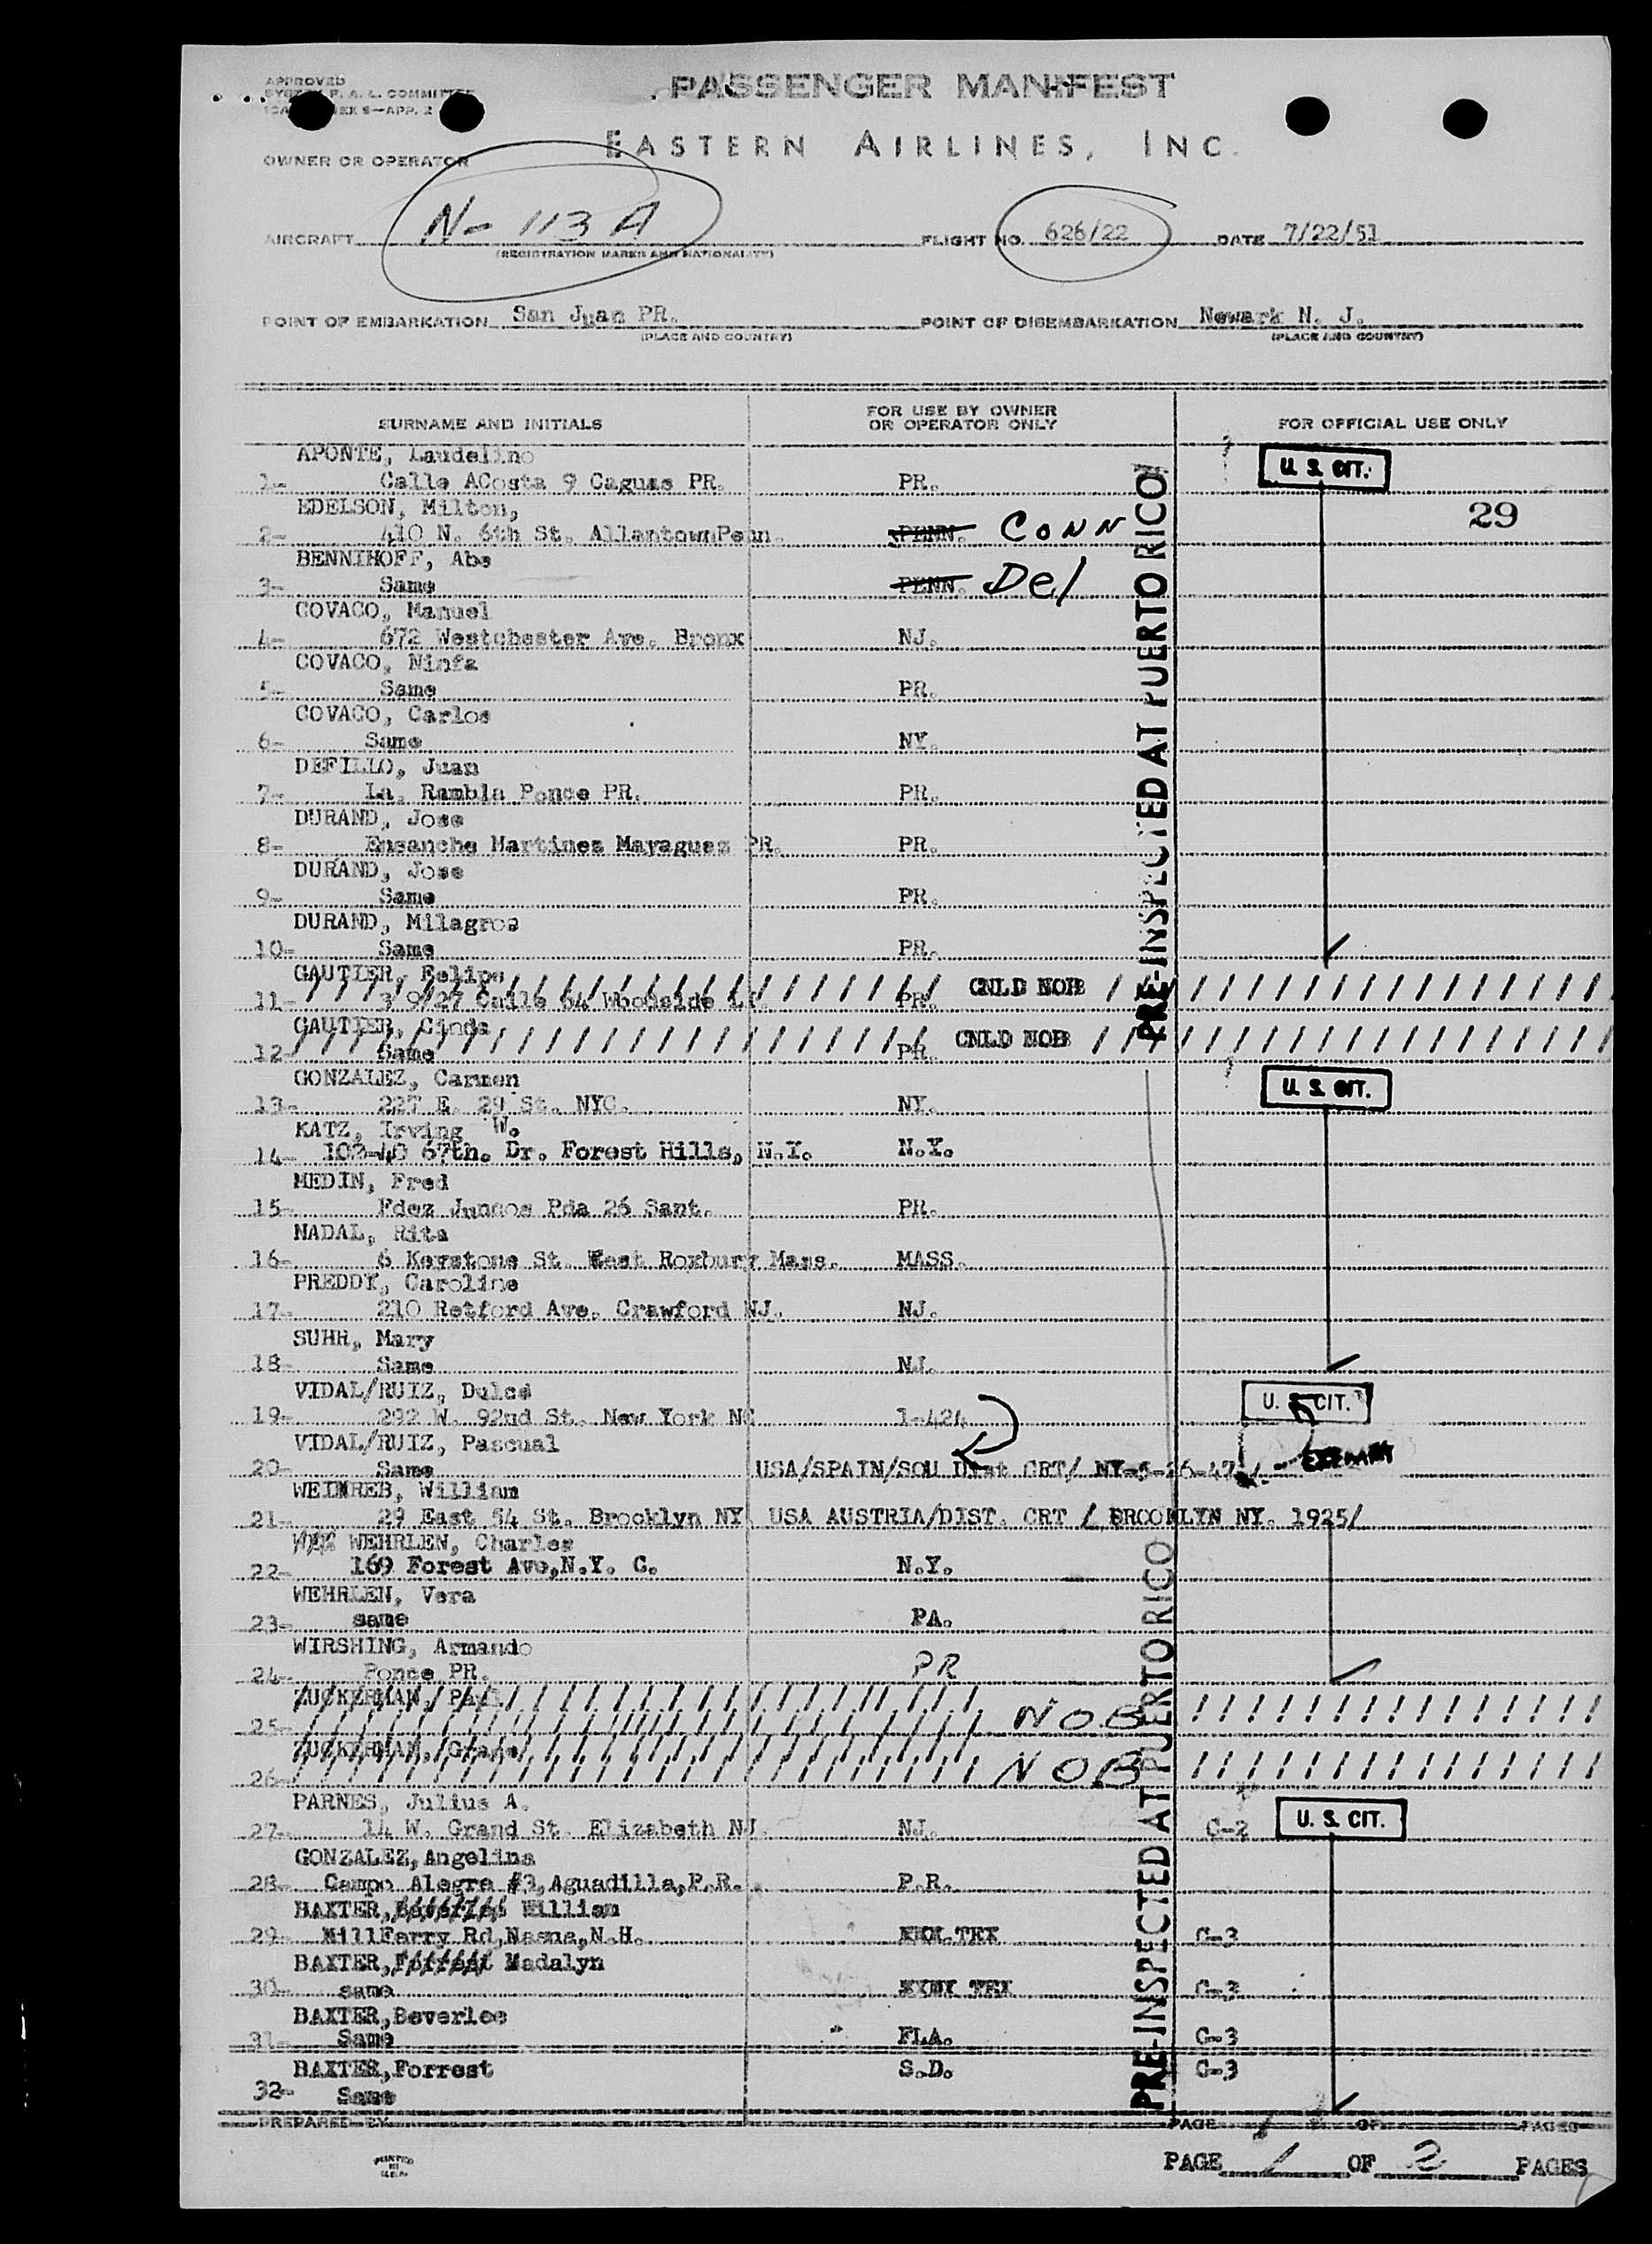 APPROVED
PASSENGER MANIFEST
EASTERN AIRLINES, INC.
OWNER OR OPERATOR
AIRCRAFT N- 113 A FLIGHT NO. 626/22 DATE 7/22/53
(REGISTRATION MARKS AND NATIONALITY)
POINT OF EMBARKATION San Juan PR. POINT OF DISEMBARKATION Newark N. J.
(PLACE AND COUNTRY) (PLACE AND COUNTRY)
SURNAME AND INITIALS FOR USE BY OWNER OR OPERATOR ONLY FOR OFFICIAL USE ONLY
APONTE, Laudelino U. S. CIT.
1- Calle ACosta 9 Caguas PR. PR.
EDELSON, Milton, 29
2- 410 N. 6th St. AllantownPenn. PENN. CONN
BENNIHOFF, Abe
3- Same PENN. Del
COVACO, Manuel
4- 672 Westchester Ave. Bronx NJ.
COVACO, Ninfa
5- Same PR.
COVACO, Carlos
6- Same NY.
DEFILLO, Juan
7- La. Rambla Ponce PR. PR.
DURAND, Jose
8- Ensanche Martinez Mayaguez PR. PR.
DURAND, Jose
9- Same PR.
DURAND, Milagros
10- Same PR.
PRE-INSPECTED AT PUERTO RICO
GAUTIER, Felipe CNLD NOB
11- Woodside PR.
GAUTIER, CNLD NOB
12- Same PR.
GONZALEZ, Carmen U. S. CIT.
13- 227 E. 29 St. NYC. NY.
KATZ, Irving W.
14- 102-40 67th. Dr. Forest Hills, N.Y. N.Y.
MEDIN, Fred
15- Fdez Juncos Pda 26 Sant. PR.
NADAL, Rita
16- 6 Keystone St. West Roxbury Mass. MASS.
PREDDY, Caroline
17- 210 Retford Ave. Crawford NJ. NJ.
SUHR, Mary
18- Same NJ.
VIDAL/RUIZ, Dulce U. S. CIT.
19- 292 W. 92nd St. New York NC 1-424
VIDAL/RUIZ, Pascual
20- Same USA/SPAIN/SOU Dist CRT/ NY-5-26-47/ - EXEMPT
WEINREB, William
21- 29 East 54 St. Brooklyn NY USA AUSTRIA/DIST. CRT / BROOKLYN NY. 1925/
WEHRLEN, Charles
22- 169 Forest Ave,N.Y. C. N.Y.
WEHRLEN, Vera
23- same PA.
WIRSHING, Armando
24- Ponce PR. PR
ZUCKERMAN, Paul
25- NOB
ZUCKERMAN,
26- NOB
PARNES, Julius A. U. S. CIT.
27- 14 W. Grand St. Elizabeth NJ. NJ. C-2
GONZALEZ,Angelina
28- Campo Alegre #3,Aguadilla,P.R. P.R.
BAXTER, William
29- MillFerry Rd,Nasua,N.H. TEX C-3
BAXTER,Forrest Madalyn
30- same TEX C-3
BAXTER,Beverlee
31- Same FLA. C-3
BAXTER,Forrest S.D. C-3
32- Same
PRE-INSPECTED AT PUERTO RICO
PREPARED BY PAGE 1 OF PAGES
PRINTED IN U.S.A.
PAGE 1 OF 2 PAGES